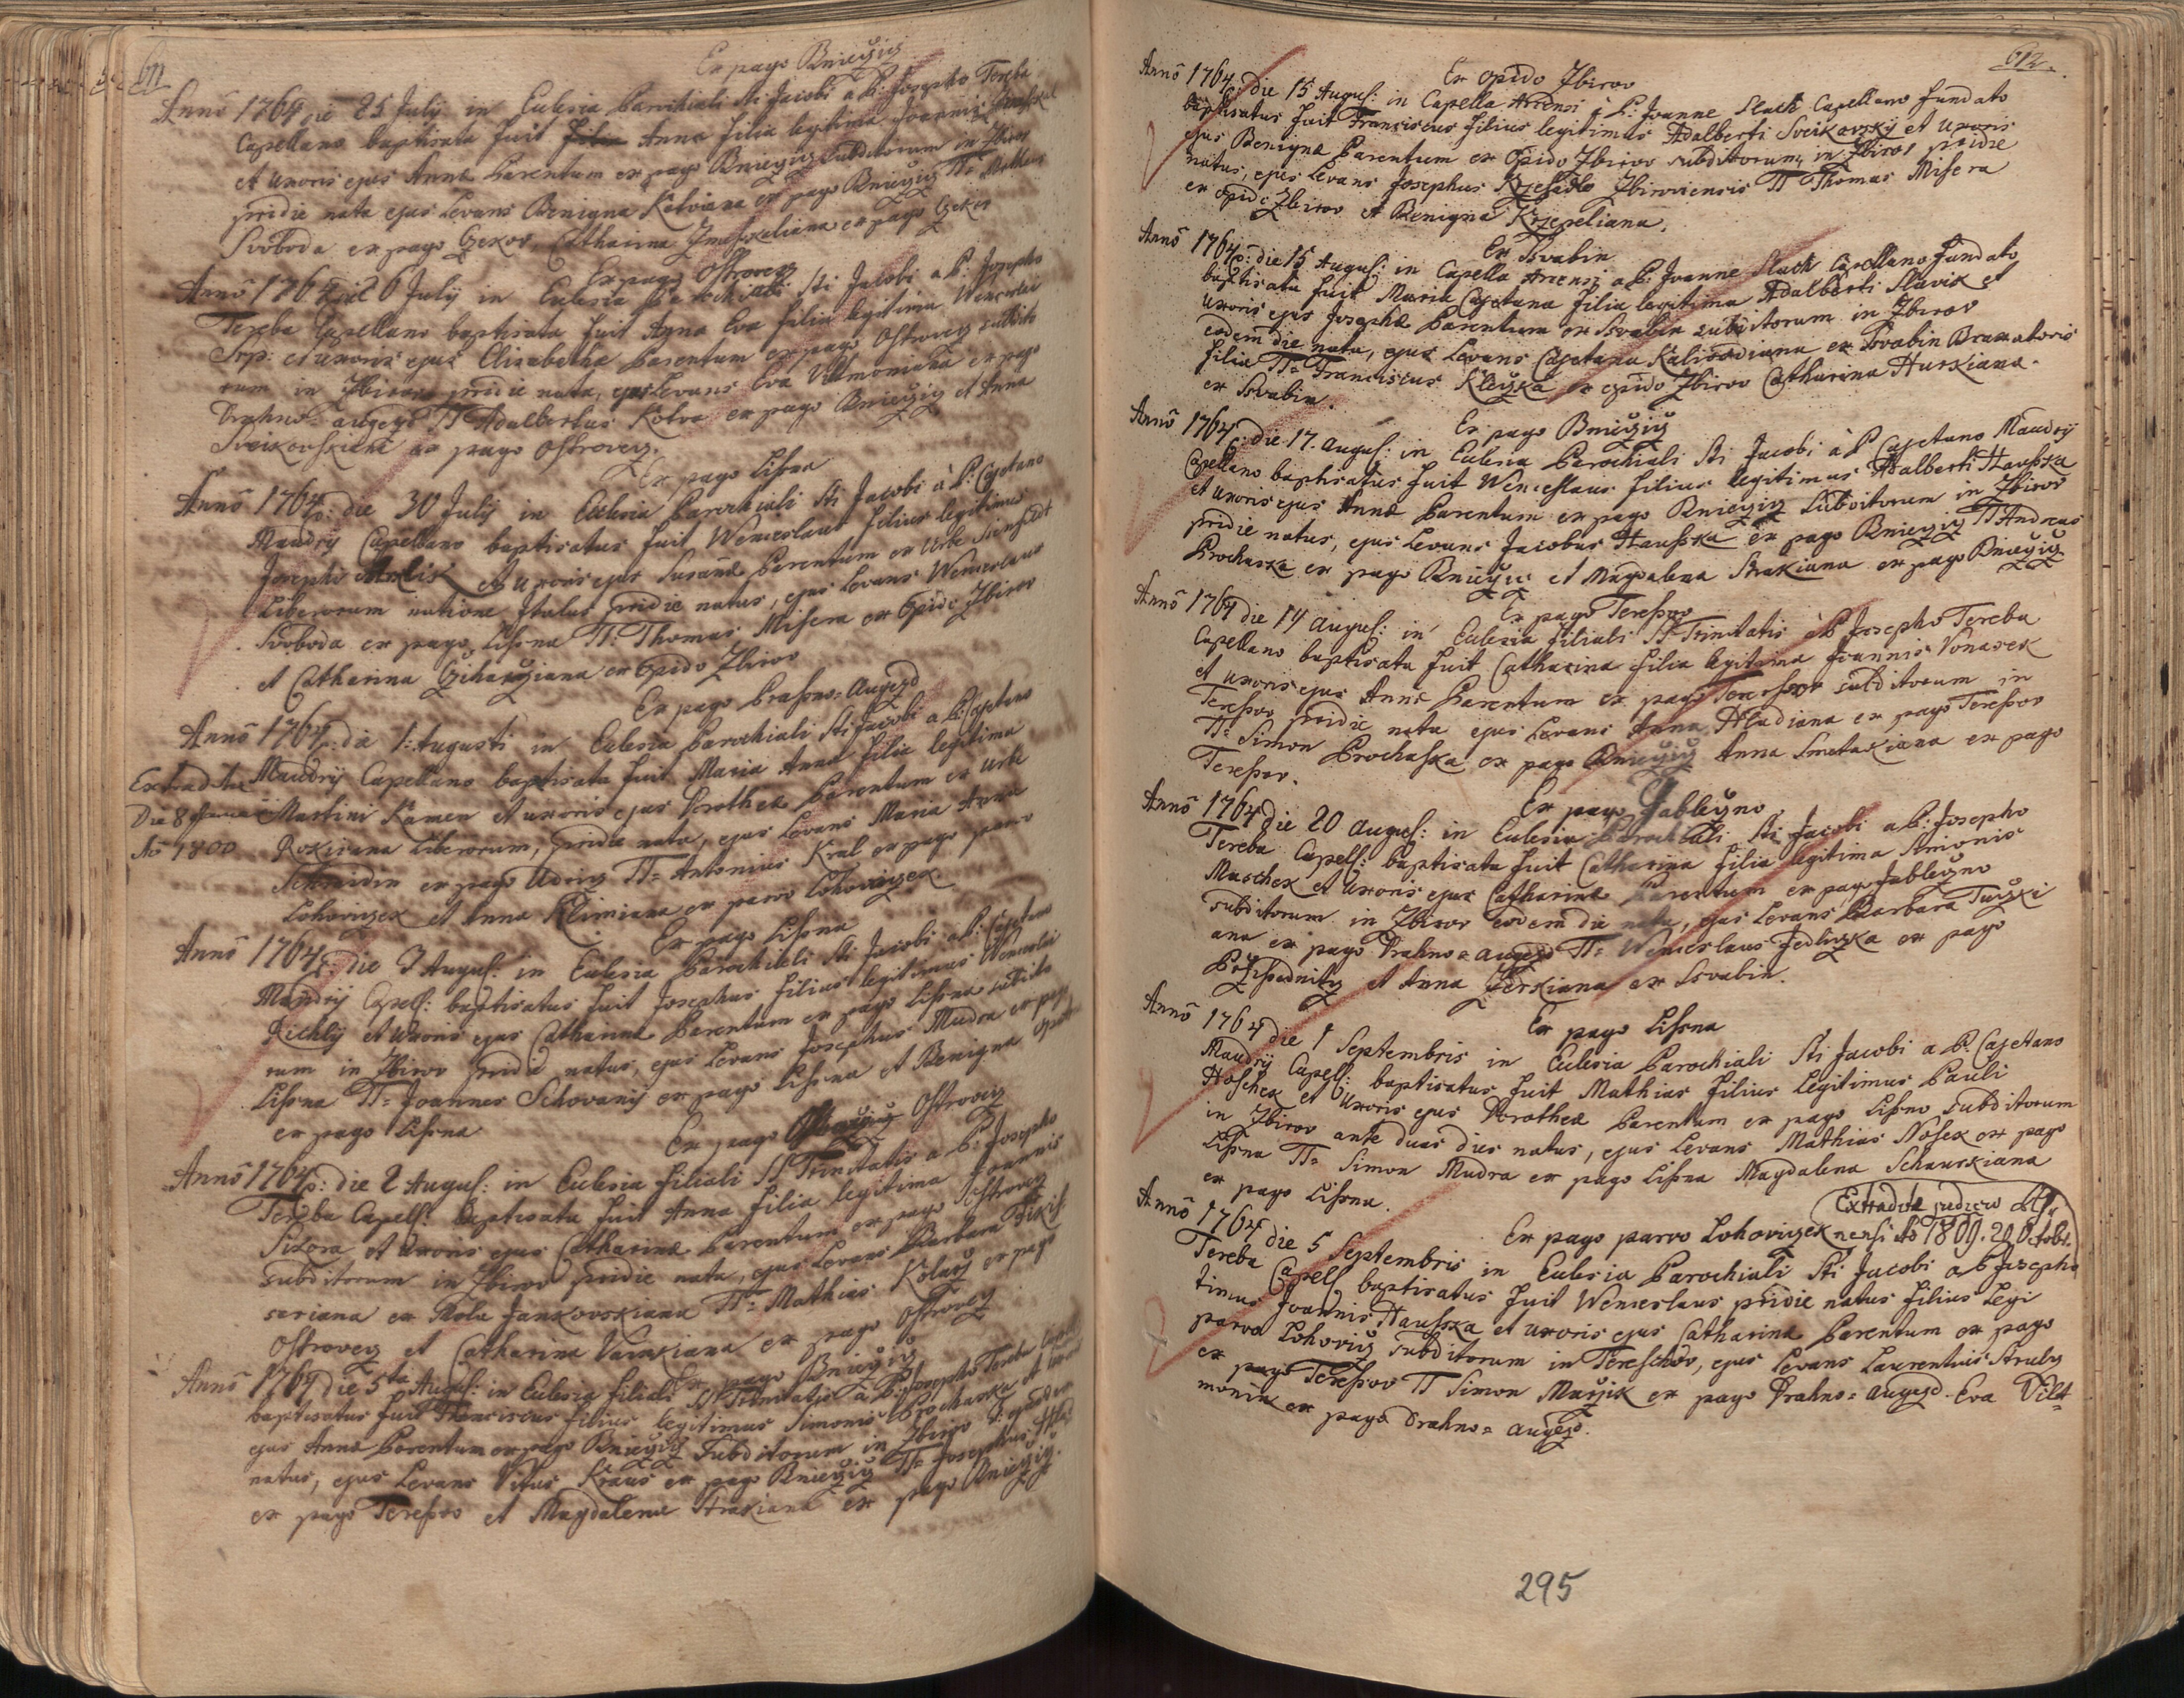 611
Ex pago Bnieczicz
Annō 1764 die 25 Julij in Eclesia Parochiali Sti Jacobi a P. Josepho Tereba
Capellano baptisata fuit Anna filia legitima Joannis
et uxoris ejus Annæ Parentum ex pago Bnieczicz subditorum in Zbirov
pridie nata ejus Levans Benigna Kotviana ex pago Bnieczicz TT=
Svoboda ex pago Czekov, Catharina ex pago Czekov
Ex pago Ostrovecz
Annō 1764 die 26 Julij in Eclesia Parochiali Sti Jacobi a P: Josepho
Tereba Capellano baptisata fuit Anna Eva filia legitima Wenceslai
Srp: et uxoris ejus Elisabethæ Parentum ex pago Ostrovecz subdito
rum in Zbirov pridie nata, ejus Levans Eva Viltmoniana ex pago
Drahno= augezd TT Adalbertus Kotva ex pago Bnieczicz et Anna
Sveikouskiana ex pago Ostrovecz.
Ex pago Lissna
Annō 1764 p: die 30 Julij in Eclesia Parochiali Sti Jacobi à P: Cajetano
Maudrij Capellano baptisatus fuit Wenceslaus filius legitimus
Josephi et uxoris ejus Susanæ Parentum ex Urbe
Liberorum natione Italus pridie natus, ejus Levans Wenceslaus
Svoboda ex pago Lissna TT: Thomas Misera ex Opido Zbirov
et Catharina ex Opido Zbirov
Ex pago Drahno= Augezd
Annō 1764 p: die 1: Augusti in Eclesia Parochiali Sti Jacobi a P: Cajetano
Maudrij Capellano baptisata fuit Maria Anna filia legitima
Extradita
Die 8
Aō 1800
Martini Kamen et uxoris ejus Dorotheæ Parentum ex Urbe
Rokizana Liberorum, pridie nata, ejus Levans Maria Anna
Schmidin ex pago TT= Antonius Kral ex pago parvo
Lohoviczek et Anna Klimiana ex parvo Lohoviczek.
Ex pago Lissna
Annō 1764 p: die 2 Augus: in Eclesia Parochiali Sti Jacobi a P: Cajetano
Maudrij Capell: baptisatus fuit Josephus filius legitimus Wenceslai
Richlij et uxoris ejus Catharinæ Parentum ex pago Lissna subdito
rum in Zbirov pridie natus, ejus Levans Josephus Mudra ex pago
Lissna TT= Joannes Schovanij ex pago Lissna et Benigna
ex pago Lissna
Ex pago Ostrovecz
Annō 1764 p: die 2 Augus: in Eclesia filiali SS Trinitatis a P: Josepho
Tereba Capell: baptisata fuit Anna filia legitima Joannis
Sikora et uxoris ejus Catharinæ Parentum ex pago Ostrovecz
subditorum in Zbirov pridie nata, ejus Levans Barbara
seriana ex Mola Jankovskiana TT= Mathias Kolarz ex pago
Ostrovecz et Catharina Vaınkiana ex pago Ostrovecz
Ex pago Bnieczicz
Annō 1764 die 5ta Augus: in Eclesia filiali SS Trinitatis à P: Josepho Tereba
baptisatus fuit Franciscus filius legitimus Simonis Prochaska et
ejus Annæ Parentum ex pago Bnieczicz subditorum in Zbirov
natus, ejus Levans Vitus Kraus ex pago Bnieczicz TT= Josephus
ex pago Teressov et Magdalena Strakiana ex pago Bnieczicz.
612.
Ex Opido Zbirov
Annō 1764 die 15 Augus: in Capella Arcensi à P: Joanne Slach Capellano fundato
baptisatus fuit Franciscus filius legitimus Adalberti Sveikovskij et uxoris
ejus Benignæ Parentum ex Opido Zbirov subditorum in Zbirov pridie
natus, ejus Levans Josephus Krzesadlo Zbiroviensis TT Thomas Misera
ex Opido Zbirov et Benigna Krzepeliana.
Ex Svabin
Annō 1764 p: die 15 Augus: in Capella Arcensi a P: Joanne Slach Capellano fundato
baptisata fuit Maria Cajetana filia legitima Adalberti Slavik et
uxoris ejus Josephæ Parentum ex Svabin subditorum in Zbirov
eodem die nata, ejus Levans Cajetana Kalivodiana ex Svabin Braxatoris
filia TT= Franciscus Kleczka ex Opido Zbirov Catharina Hurkiana.
ex Svabin.
Ex pago Bnieczicz
Annō 1764 p: die 17. Augus: in Eclesia Parochiali Sti Jacobi à P Cajetano Maudrij
Capellano baptisatus fuit Wenceslaus filius legitimus Adalberti Hausska
et uxoris ejus Annæ Parentum ex pago Bnieczicz subditorum in Zbirov
pridie natus, ejus Levans Jacobus Hausska ex pago Bnieczicz TT Andreas
Prochaska ex pago Bnieczicz et Magdalena Strakiana ex pago Bnieczicz
Ex pago Teressov
Annō 1764 die 19 augus: in Eclesia filiali SS Trinitatis à P Josepho Tereba
Capellano baptisata fuit Catharina filia legitima Joannis Vonasek
et uxoris ejus Annæ Parentum ex pago Teressov subditorum in
Teressov pridie nata ejus Levans Anna Hladiana ex pago Teressov
TT= Simon Prochaska ex pago Bnieczicz Anna Smetakiana ex pago
Teressov.
Ex pago Jableczno
Annō 1764 die 20 augus: in Eclesia Parochiali Sti Jacobi a P: Josepho
Tereba Capell: baptisata fuit Catharina filia legitima Simonis
Maschek et uxoris ejus Catharinæ Parentum ex pago Jableczno
subditorum in Zbirov eodem die nata, ejus Levans Barbara Tuczki
ana ex pago Drahno= augezd TT= Wenceslaus Jedliczka ex pago
et Anna Zdrkiana ex Svabin.
Ex pago Lissna
Annō 1764 die 1 Septembris in Eclesia Parochiali Sti Jacobi a P: Cajetano
Maudrij Capell: baptisatus fuit Mathias filius Legitimus Pauli
Hoschek et uxoris ejus Dorotheæ Parentum ex pago Lissno subditorum
in Zbirov ante duas dies natus, ejus Levans Mathias Nosek ex pago
Lissna TT= Simon Mudra ex pago Lissna Magdalena Schaurkiana
ex pago Lissna.
Extradita judicio
nensi Aō 1809. 20 Octobr.
Ex pago parvo Lohoviczek
Annō 1764 die 5 Septembris in Eclesia Parochiali Sti Jacobi a P Josepho
Tereba Capell baptisatus fuit Wenceslaus pridie natus filius Legi
timus Joannis Hausska et uxoris ejus Catharinæ Parentum ex pago
parvo Lohovicz subditorum in Tereschov, ejus Levans Laurentius Strulez
ex pago Teressov TT Simon Maczik ex pago Drahno= augezd. Eva Vilt=
monin ex pago Drahno= augezd.
295